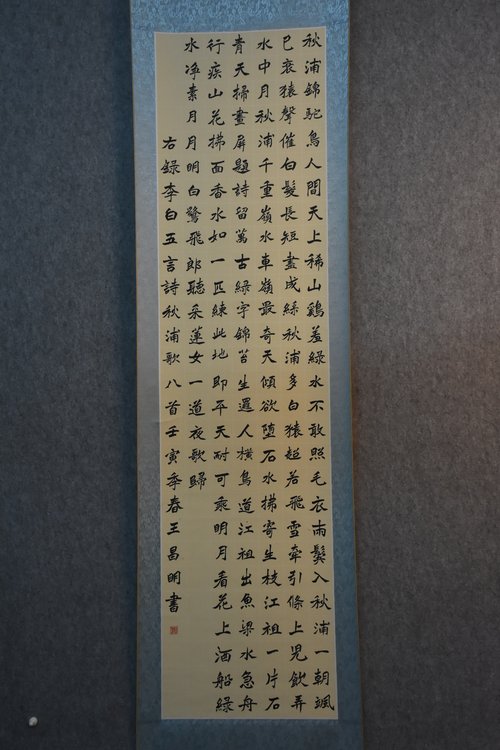 秋浦錦駝鳥人間天上稀山鷄羞綠水不敢照毛衣兩鬢入秋浦一朝颯
已衰猿聲催白髮長短盡成絲秋浦多白猿超若飛雪牽引條上兒飲弄
水中月秋浦千重嶺水車嶺最奇天傾欲墮石水拂寄生枝江祖一片石
青天掃畫屏題詩留萬古綠字錦苔生邏人橫鳥道江祖出魚梁水急舟
行疾山花拂面香水如一匹練此地即平天耐可乘明月看花上酒船綠
水净素月月明白鷺飛郎聽采蓮女一道夜歌歸
右錄李白五言詩秋浦歌八首壬寅季春王昌明書